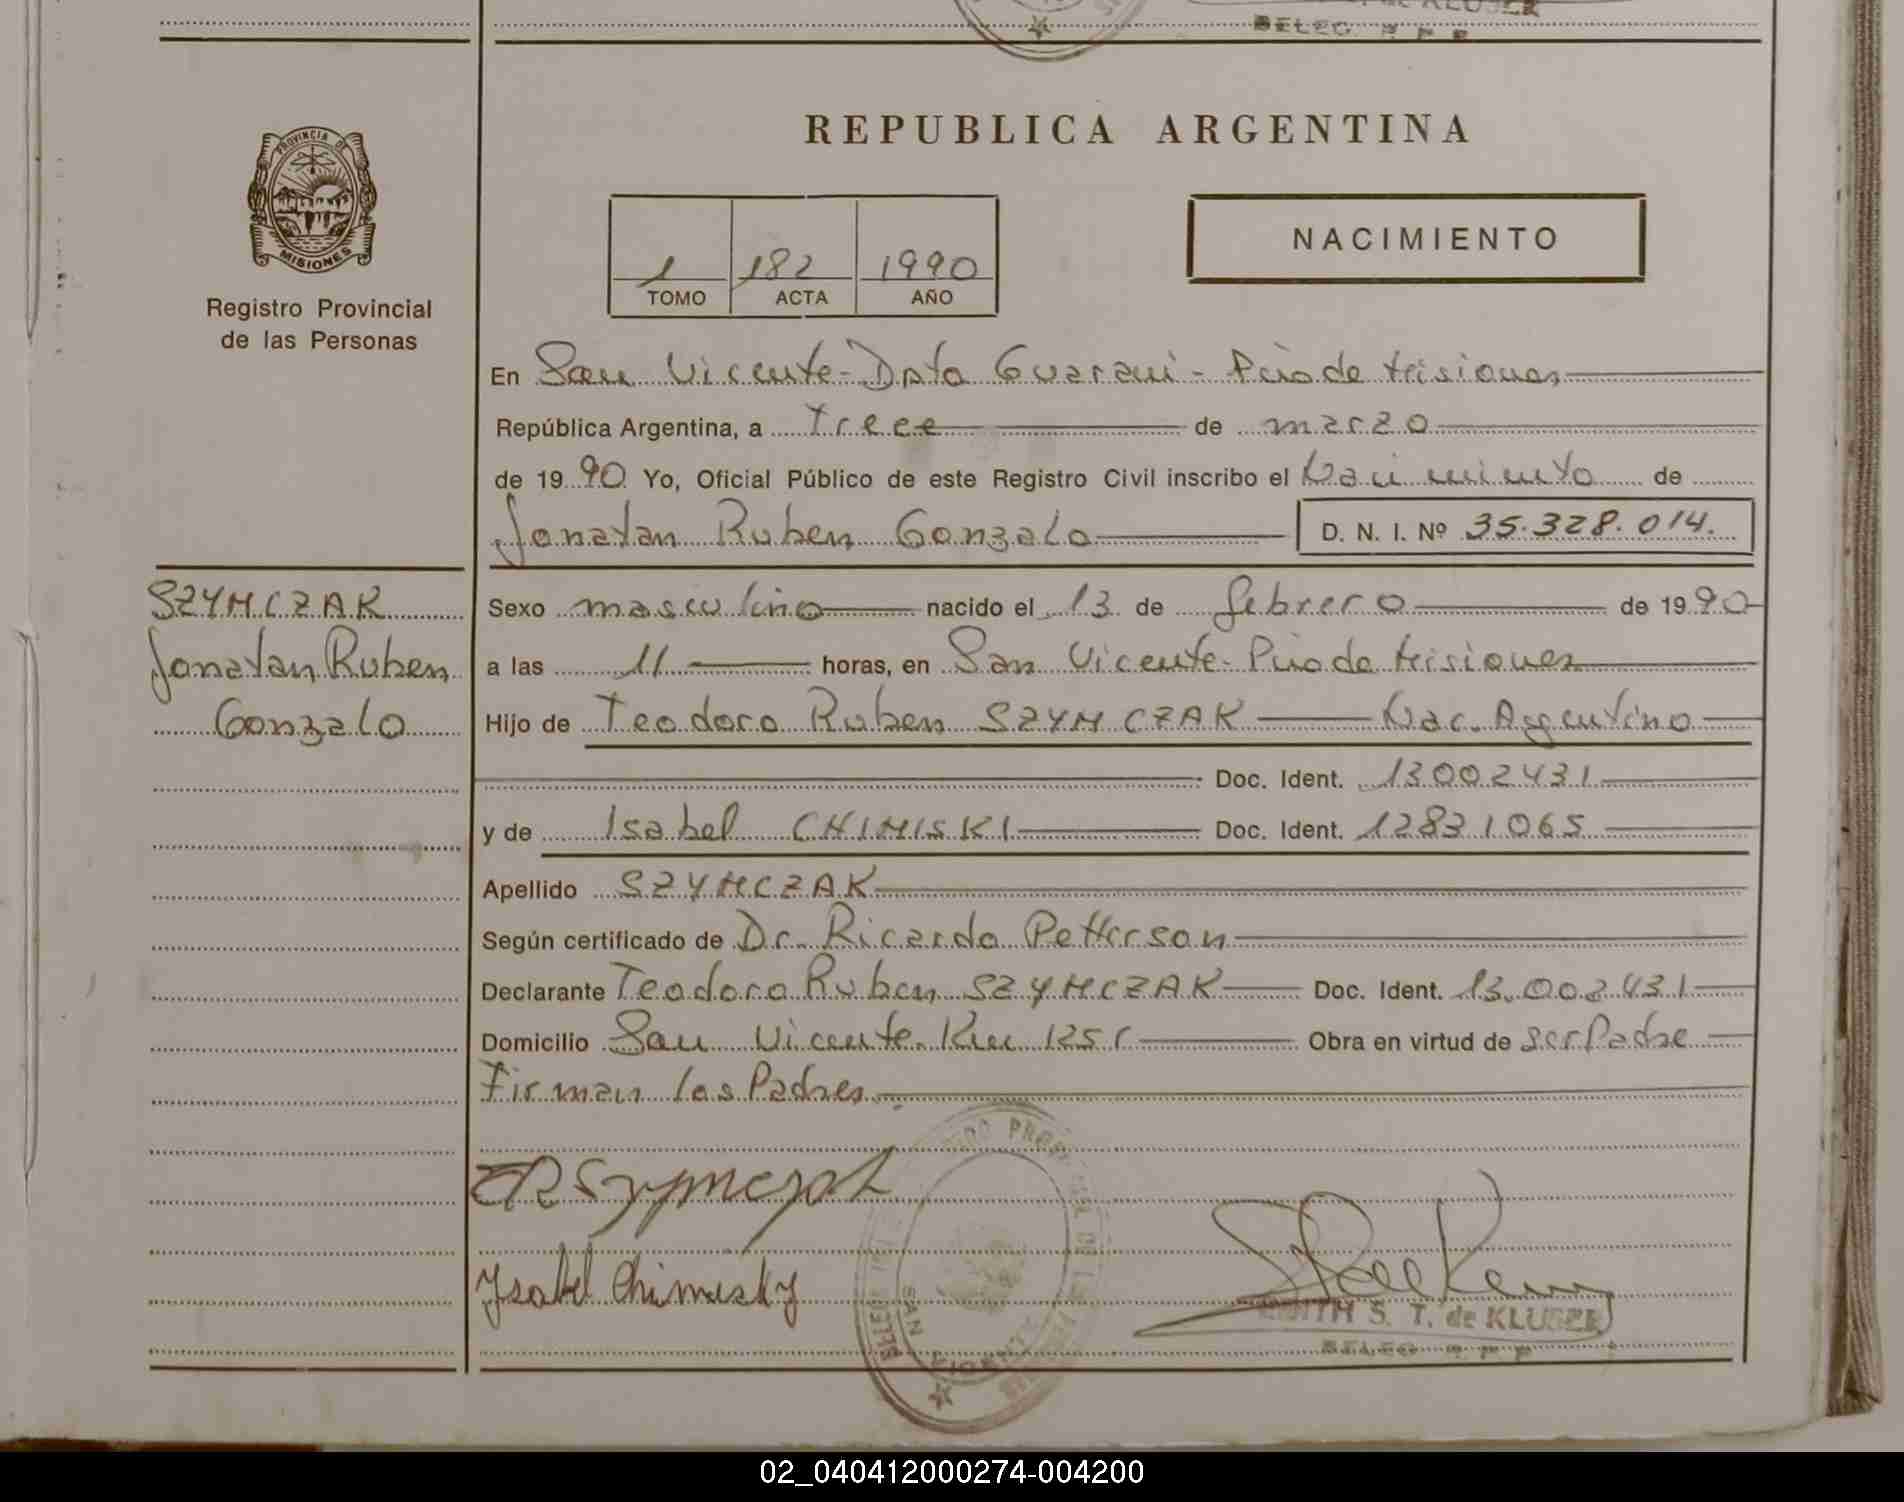 de KLUGER
DELEG. R P P
PROVINCIA DE
MISIONES
Registro Provincial
de las Personas
REPUBLICA ARGENTINA
1 182 1990
TOMO ACTA AÑO
NACIMIENTO
En San Vicente - Dpto Guarani - Pcia de Misiones
República Argentina, a Trece de marzo
de 1990 Yo, Oficial Público de este Registro Civil inscribo el Nacimiento de
Jonatan Ruben Gonzalo D. N. I. Nº 35.328.014.
SZYMCZAK
Jonatan Ruben
Gonzalo
Sexo masculino nacido el 13 de febrero de 1990
a las 11 horas, en San Vicente - Pcia de Misiones
Hijo de Teodoro Ruben SZYMCZAK Nac. Argentino
Doc. Ident. 13002431
y de Isabel CHIMISKI Doc. Ident. 12831065
Apellido SZYMCZAK
Según certificado de Dr. Ricardo Petterson
Declarante Teodoro Ruben SZYMCZAK Doc. Ident. 13.002.431
Domicilio San Vicente. Km 1251 Obra en virtud de ser Padre
Firman los Padres.
Szymczak
Ysabel Chimisky
SAN VICENTE
EDITH S. T. de KLUGER
DELEG R P P
02_040412000274-004200